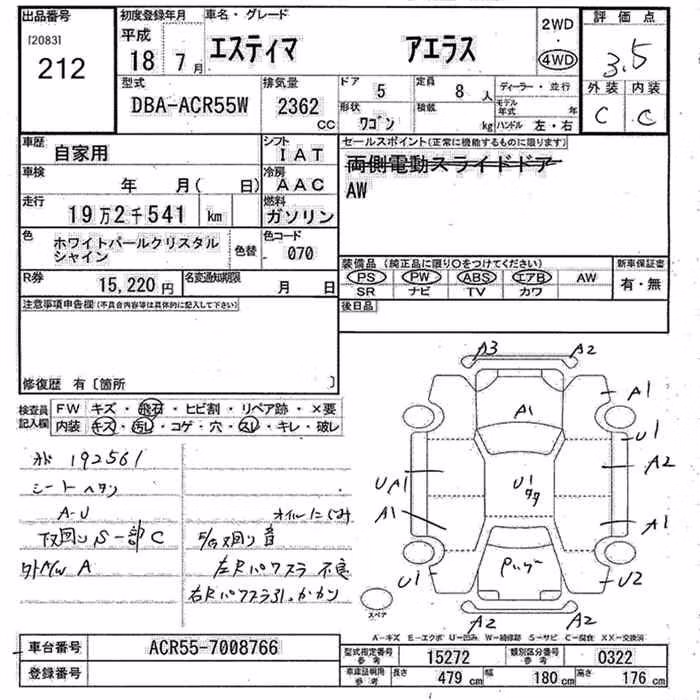 出品番号
[2083]
212
初度登録年月
平成
18 7月
車名・グレード
エスティマ アエラス
2WD
4WD
評価点
3.5
外装 内装
C C
型式
DBA-ACR55W
排気量
2362 cc
ドア
5
形状
ワゴン
定員
8人
積載
kg
ディーラー・並行
モデル年式 年
ハンドル 左・右
車歴
自家用
車検
年 月( 日)
走行
19万2千541 km
色
ホワイトパールクリスタル
シャイン
色替
シフト
IAT
冷房
AAC
燃料
ガソリン
色コード
070
R券
15,220円
名変通知期限
月 日
セールスポイント(正常に機能するものに限ります)
両側電動スライドドア
AW
装備品(純正品に限り○をつけてください)
PS PW ABS エアB AW
SR ナビ TV カワ
新車保証書
有・無
後日品
注意事項申告欄(不具合内容等は具体的に記入して下さい)
修復歴 有〔箇所 〕
検査員
記入欄
FW キズ・飛石・ヒビ割・リペア跡・×要
内装 キズ・汚レ・コゲ・穴・スレ・キレ・破レ
192561
シートヘタリ
A-U
オイルにじみ
下回りS一部C
外AW A
左Rパワスラ不良
A3 A2
A1
A1
U1
A2
U A1
U1
A1
A1
U1
U2
A2 A2
スペア
A-キズ E-エクボ U-凹み W-補修跡 S-サビ C-腐食 XX-交換済
車台番号
ACR55-7008766
登録番号
型式指定番号
参考
15272
類別区分番号
参考
0322
車庫証明用
参考
長さ 479cm 幅 180cm 高さ 176cm